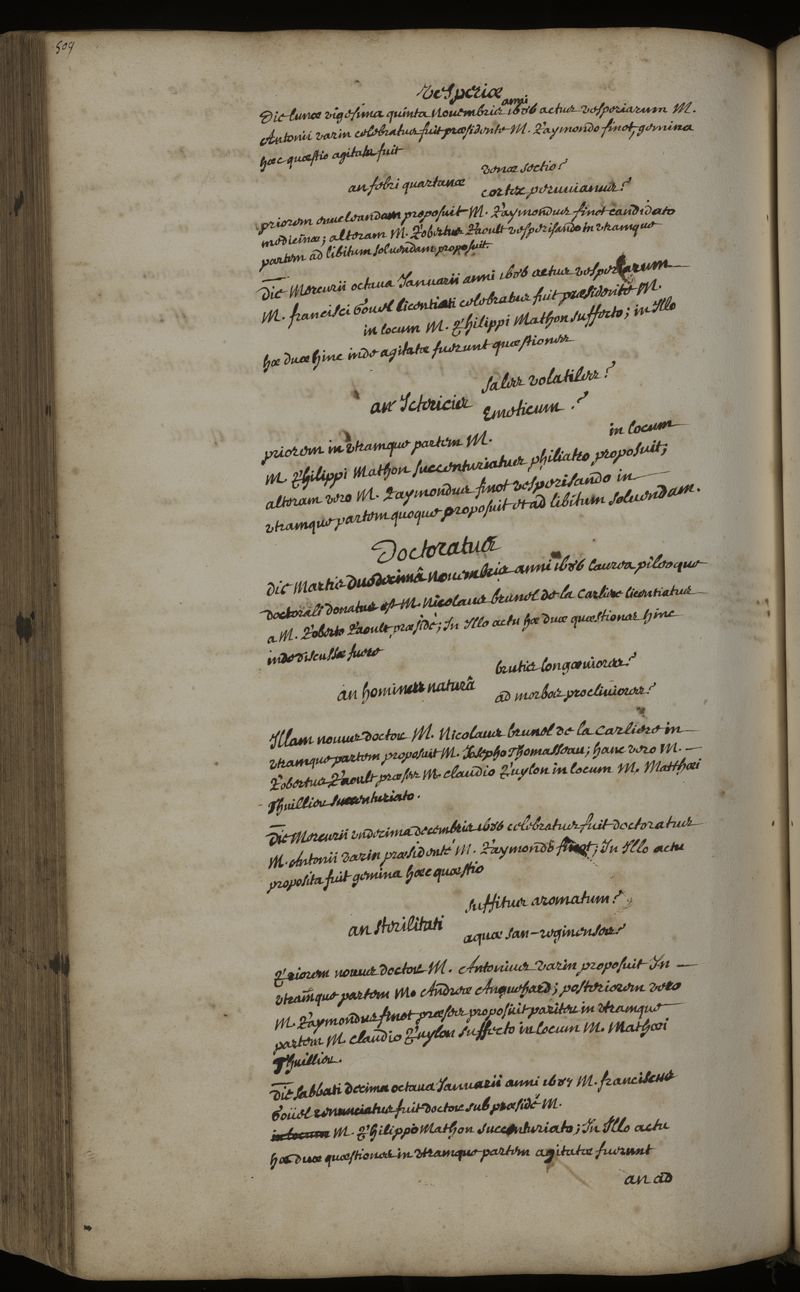 509
Vesperiæ
Die lunæ vigesima quinta novembris anni 1686 actus vesperiarum M.
Antonii varin celebratus fuit præsidente M. Raymondo finot, gemina
hæc quæstio agitata fuit
an febri quartanæ venæ sectio?
cortex peruuianus?
priorem enucleandam proposuit M. Raymondus finot candidato
medicinæ; alteram M. Robertus Raoult vesperisando in vtramque
partem ad libitum soluendam proposuit.
Die Mercurii octaua Januarii anni 1686 actus vesperiarum
M. francisci Goüel licentiati celebratus fuit præsidente M.
in locum M. Philippi Mathon suffecto; in Illo
hæ duæ hinc inde agitatæ fuerunt quæstiones
an Ictericis sales volatiles?
Emeticum?
priorem in vtramque partem M. in locum
M. Philippi Mathon succenturiatus philiatro proposuit;
alteram vero M. Raymondus finot vesperisando in
vtramque partem quoque proposuit et ad libitum soluendam.
Doctoratus
die Martis duodecimâ nouembris anni 1686 laurea pileoque
doctorali donatus est M. Nicolaus brunel de la Carliere licentiatus
a M. Roberto Raoult præside; In Illo actu hæ duæ quæstiones hinc
inde discussæ fuere
an homines naturâ brutis longæuiores?
ad morbos procliuiores?
Illam nouus doctor M. Nicolaus brunel de la Carliere in
vtramque partem proposuit M. Josepho Thomasseau; hanc vero M.
Robertus Raoult præses M. claudio Quylon in locum M. Matthæi
Thuillier succenturiato.
Die Mercurii vndecima decembris 1686 celebratus fuit doctoratus
M. Antonii varin præsidente M. Raymondo finot; In Illo actu
proposita fuit gemina hæc quæstio
an sterilitati suffitus aromatum?
aquæ san-reginenses?
Priorem nouus doctor M. Antonius varin proposuit In
vtramque partem M. Andreæ Enguehard; posteriorem vero
M. Raymondus finot præses proposuit pariter in vtramque
partem M. claudio Quylon suffecto in locum M. Mathæi
Thuillier.
Die Sabbati decima octaua Januarii anni 1687 M. franciscus
Goüel renunciatus fuit doctor sub præside M.
in locum M. Philippo Mathon succenturiato; In Illo actu
hæ duæ quæstiones in vtramque partem agitatæ fuerunt
an ad